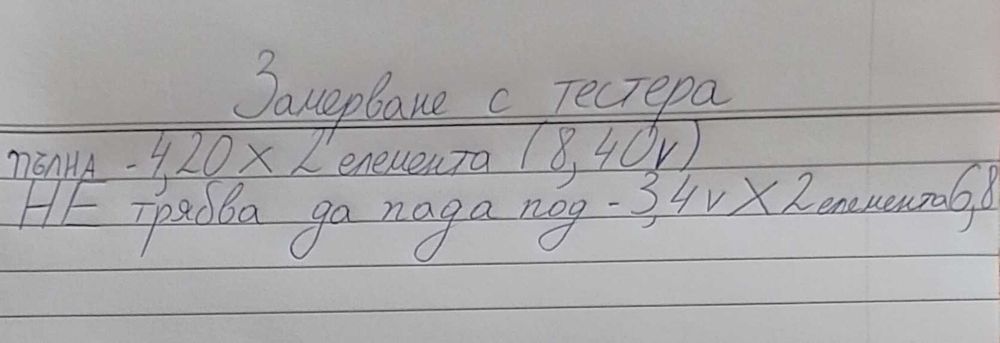 Замерване с тестера
ПЪЛНА - 4,20 X 2 елемента (8,40v)
НЕ трябва да пада под - 3,4v X 2 елемента 6,8